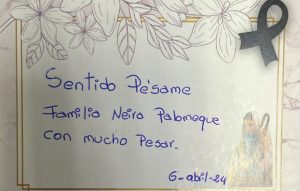 Sentido Pésame
Familia Neira Palomeque
con mucho Pesar.
6-abril-24